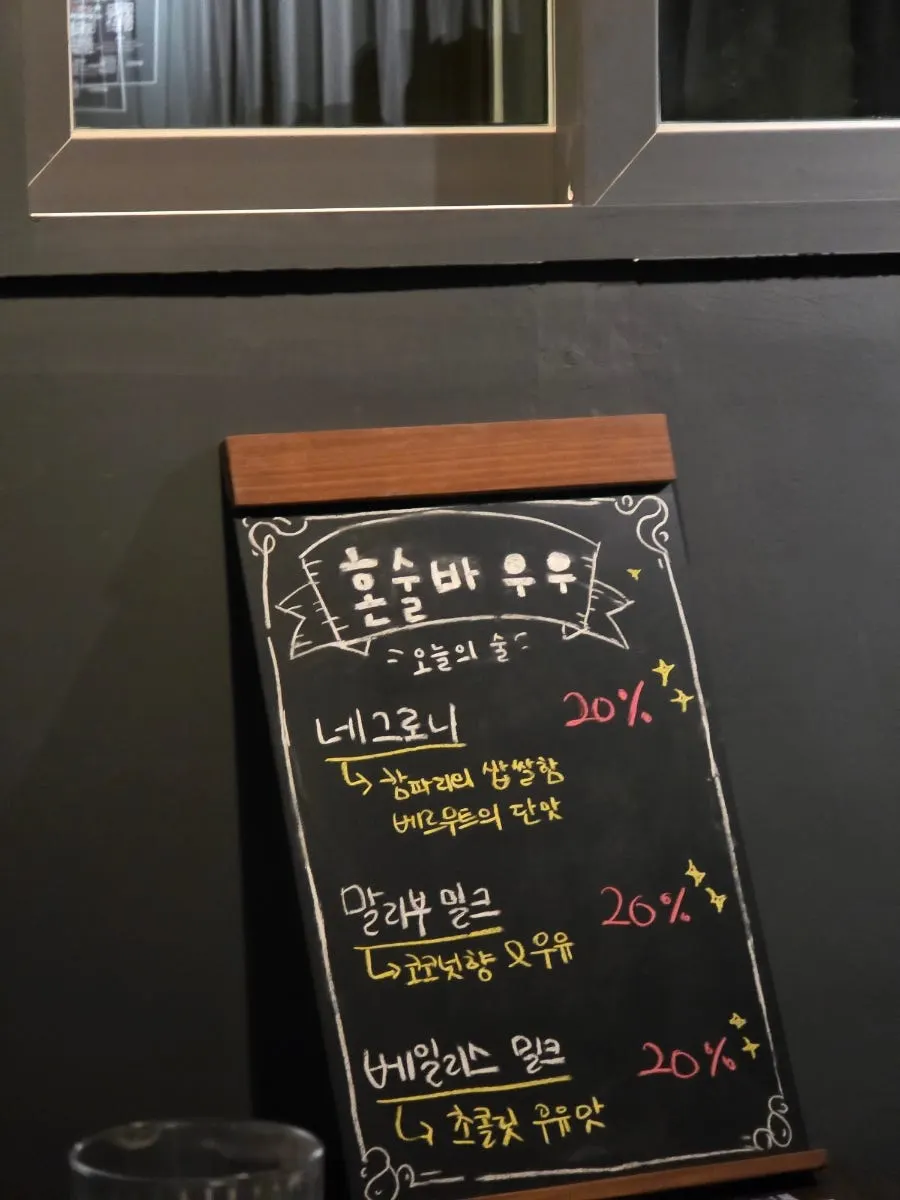 혼술바 우우
= 오늘의 술 =
네그로니 20%
↳ 캄파리의 쌉쌀함
베르무트의 단맛
말리부 밀크 20%
↳ 코코넛향 & 우유
베일리스 밀크 20%
↳ 초콜릿 우유맛